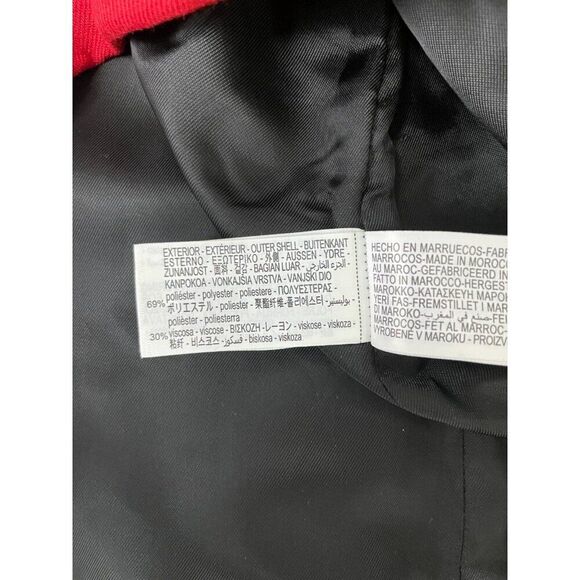 EXTERIOR - EXTÉRIEUR - OUTER SHELL - BUITENKANT
ESTERNO - ΕΞΩΤΕΡΙΚΟ - 外側 - AUSSEN - YDRE -
ZUNANJOST - 面料 - 겉감 - BAGIAN LUAR - الجزء الخارجي -
KANPOKOA - VONKAJSIA VRSTVA - VANJSKI DIO
poliéster - polyester - poliestere - ΠΟΛΥΕΣΤΕΡΑΣ -
69% ポリエステル - poliester - 聚酯纤维 - 폴리에스터 - بوليستير -
polièster - poliesterra
30% viscosa - viscose - ΒΙΣΚΟΖΗ - レーヨン - viskose - viskoza
粘纤 - 비스코스 - فسكوز - biskosa - viskoza
HECHO EN MARRUECOS-FABR
MARROCOS-MADE IN MOROC
AU MAROC-GEFABRICEERD IN
FATTO IN MAROCCO-HERGEST
MAROKKO-ΚΑΤΑΣΚΕΥΗ ΜΑΡΟΚ
VERI FAS-FREMSTILLET I MAR
DI MAROKO-صنع في المغرب-FEI
MARROCOS-FET AL MARROC-
VYROBENÉ V MAROKU - PROIZV